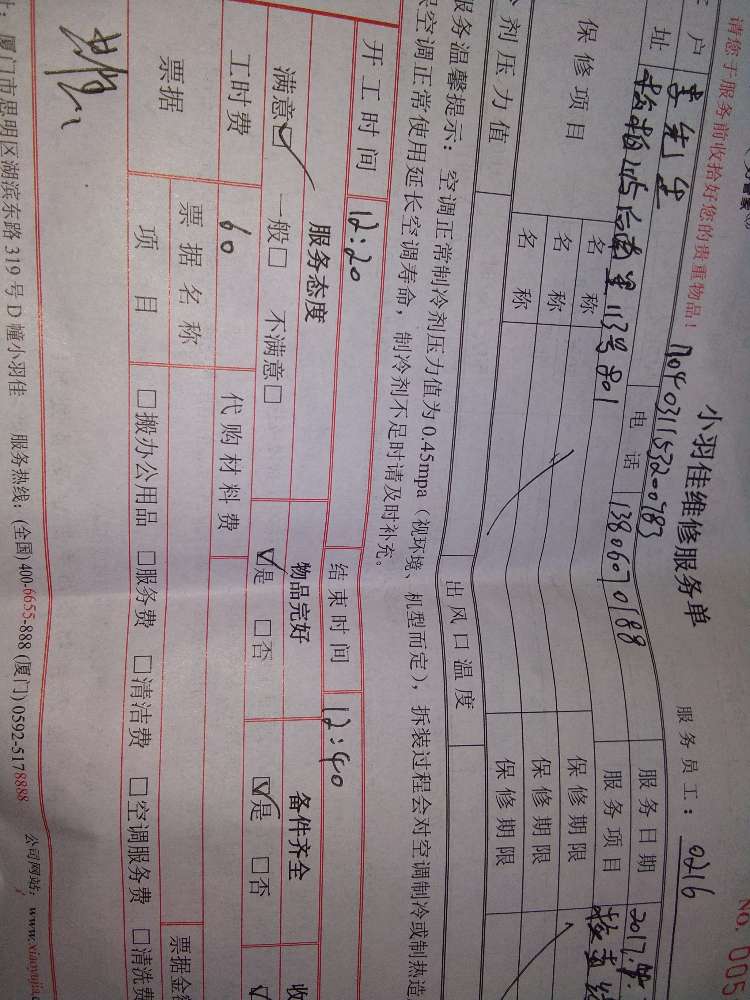 请您于服务前收拾好您的贵重物品！
小羽佳维修服务单
NO. 005
n04031153200783
服务员工： 0216
户 李先生
电话 13806070188
服务日期 2017.
址 松柏 后南里113号801
服务项目
保修项目 名称 保修期限
名称 保修期限
名称 保修期限
剂压力值 出风口温度
服务温馨提示： 空调正常制冷剂压力值为0.45mpa（视环境、机型而定），拆装过程会对空调制冷或制热造
空调正常使用延长空调寿命，制冷剂不足时请及时补充。
开工时间 12:20 结束时间 12:40
服务态度 物品完好 备件齐全 收
满意☑ 一般□ 不满意□ ☑是 □否 ☑是 □否
工时费 60 代购材料费
票据 票据名称 票据金额
项目 □搬办公用品 □服务费 □清洁费 □空调服务费 □清洗费
厦门市思明区湖滨东路319号D幢小羽佳 服务热线：(全国)400-6655-888 (厦门) 0592-5178888 公司网站：www.xiaoyujia.